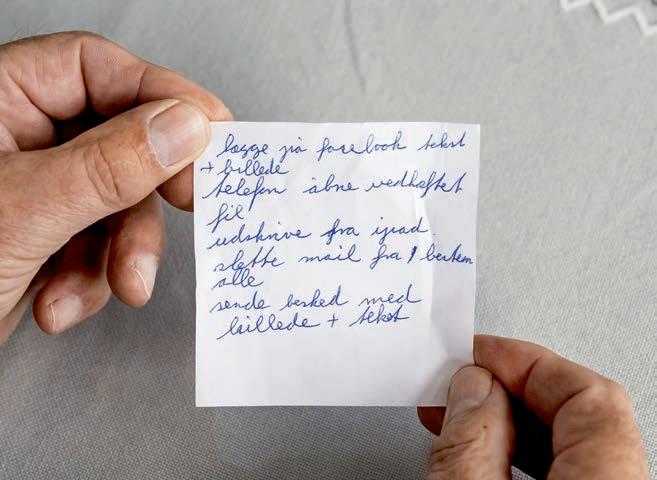 lægge på facebook tekst
+ billede
telefon åbne vedhæftet
fil
udskrive fra ipad.
slette mail fra 1 bestem
alle
sende besked med
billede + tekst